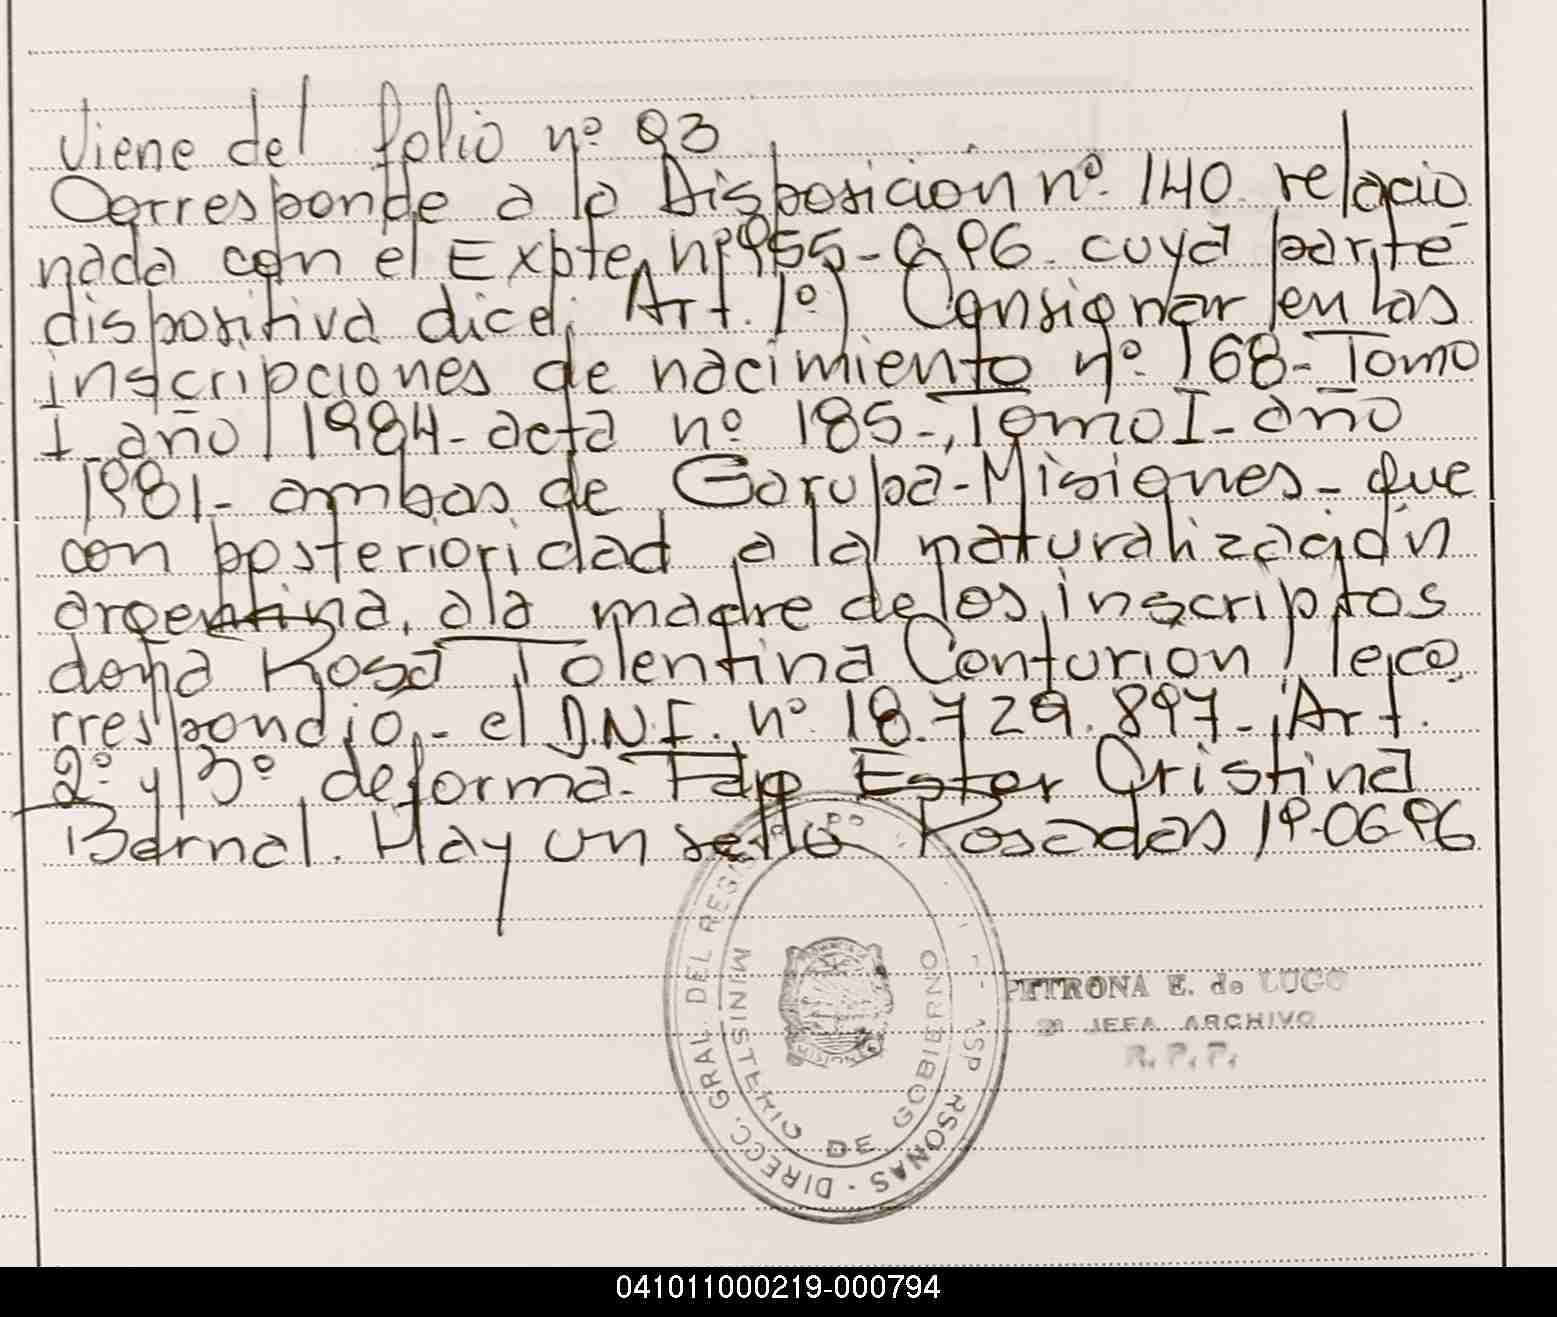 Viene del folio nº 93
Corresponde a la Disposición nº 140 relacio
nada con el Expte nº 955-C-96. cuya parte
dispositiva dice: Art. 1º) Consignar en las
inscripciones de nacimiento nº 168-Tomo
I año 1984-acta nº 185-, Tomo I-año
1981- ambas de Garupa-Misiones-que
con posterioridad a la naturalización
argentina, ala madre de los inscriptos
doña Rosa Tolentina Centurion, le co
rrespondio,- el D.N.I. nº 18.729.897- Art.
2º y 3º de forma- Fdo Ester Cristina
Bernal. Hay un sello Posadas 19-06-96
DIRECC. GRAL. DEL REGIS
MINISTERIO DE GOBIERNO
PETRONA E. de LUGO
2ª JEFA ARCHIVO
R. P. P.
041011000219-000794